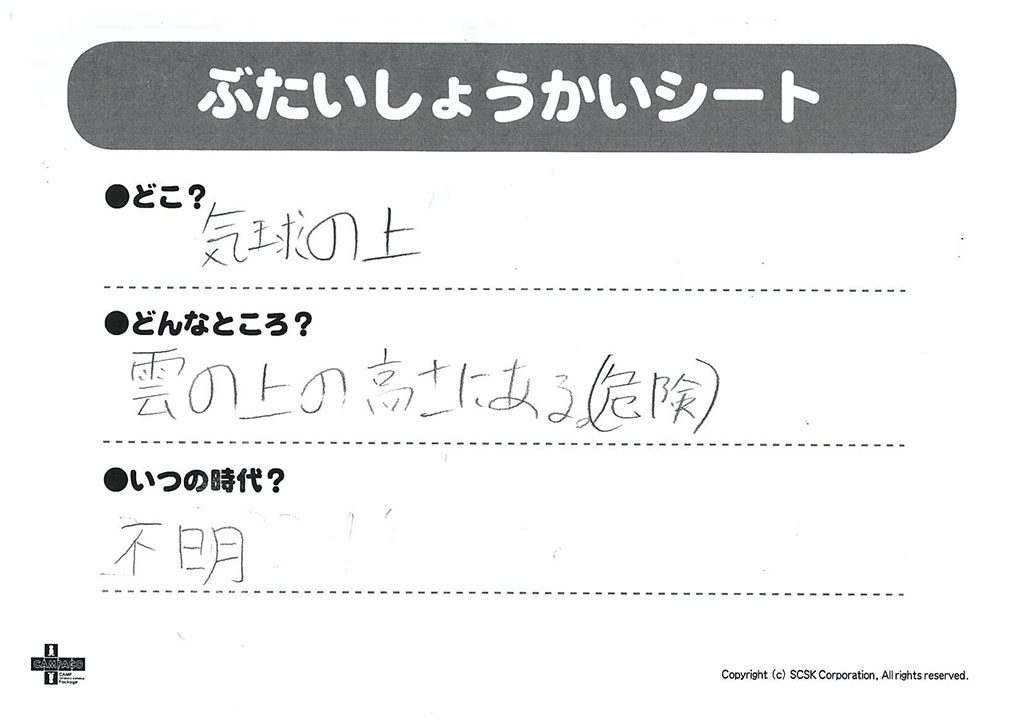 ぶたいしょうかいシート
●どこ？
気球の上
●どんなところ？
雲の上の高さにある。(危険)
●いつの時代？
不明
CAMPACO
CAMP
Package
Copyright (c) SCSK Corporation, All rights reserved.